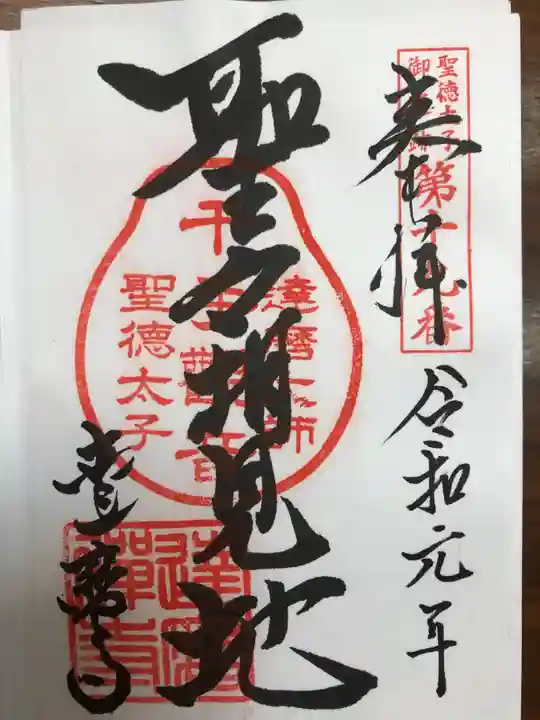 聖徳太子
御遺跡
第十九番
奉拝
令和元年
聖令相見地
達磨大師
千手観音
聖徳太子
達磨寺
達磨
禅寺